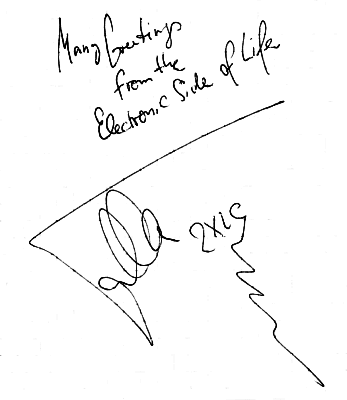 Many Greetings
from the
Electronic Side of Life